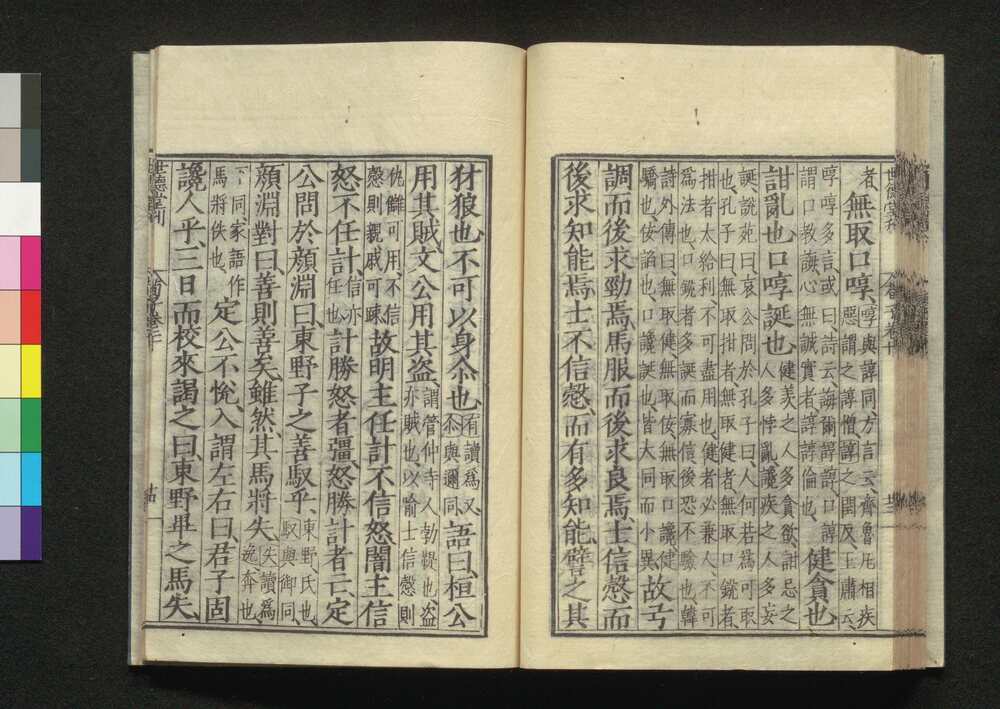 者、無取口啍、啍與諄同方言云、齊魯凡相疾
惡謂之諄憎諄之閏反王肅云、
啍啍多言或曰、詩云、誨爾諄諄、口諄
謂口教誨心無誠實者、諄諄倫也、健貪也、
詌亂也、口啍誕也、健羨之人多貪欲、詌忌之
人多悖亂讒疾之人多妄
誕、說苑曰、哀公問於孔子曰、人何若爲可取
也、孔子曰、無取拑者、無取健者、無取口銳者、
拑者太給利、不可盡用也、健者必兼人不可
爲法也、口銳者多誕而寡信後恐不驗也、韓
詩外傳曰、無取健、無取佞、無取口讒、健
驕也、佞諂也、口讒誕也、皆大同而小異故弓
調而後求勁焉、馬服而後求良焉、士信愨而
後求知能焉、士不信愨、而有多知能、譬之其
犲狼也、不可以身尒也、有讀爲又、
尒與邇同、語曰、桓公
用其賊、文公用其盜、謂管仲寺人勃鞮也、盜
亦賊也、以喻士信愨則
仇讎可用、不信
愨則親戚可疎故明主任計不信怒、闇主信
怒不任計、信亦
任也、計勝怒者彊、怒勝計者亡、定
公問於顏淵曰、東野子之善馭乎、東野、氏也、
馭與御同、
顏淵對曰、善則善矣、雖然其馬將失、失讀爲
逸、奔也、
下同、家語作
馬將佚也、定公不悅、入謂左右曰、君子固
讒人乎、三日而校來謁之曰、東野畢之馬失、
世德堂刊